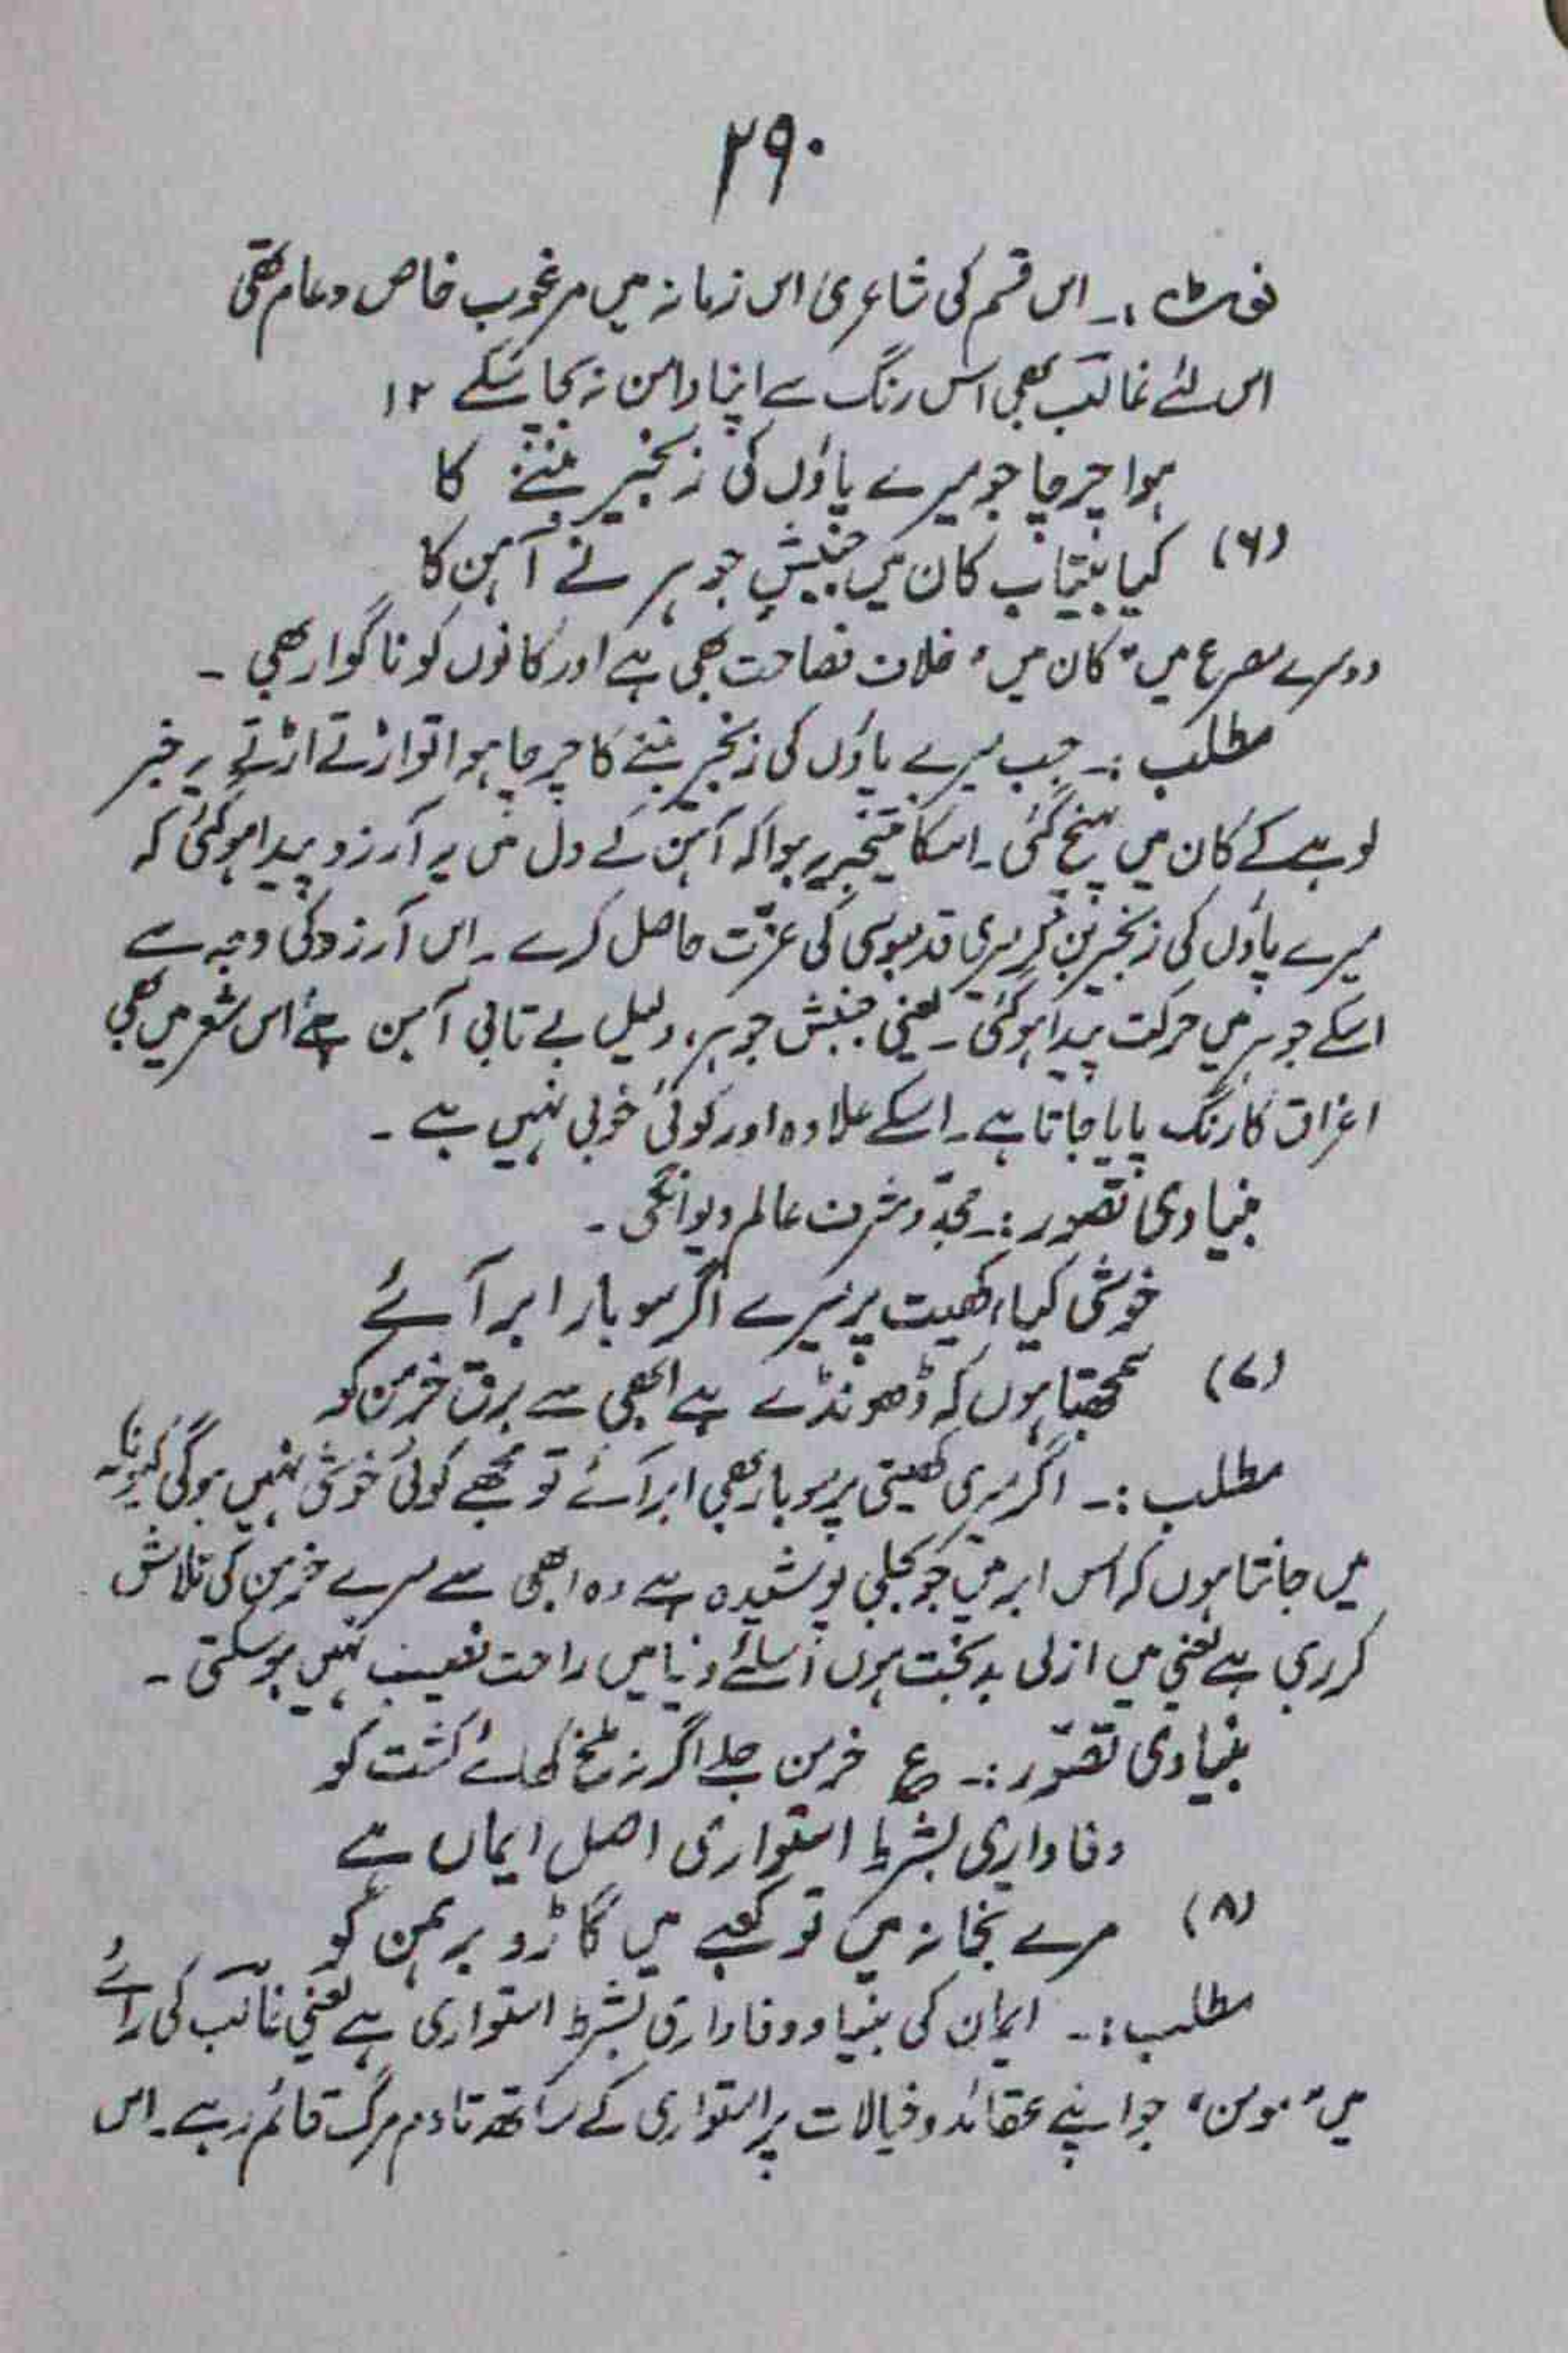 ۲۹۰
نوٹ :۔ اس قسم کی شاعری اس زمانہ میں مرغوب خاص و عام تھی
اس لئے غالب بھی اس رنگ سے اپنا دامن نہ بچا سکے ۱۲
ہوا چرچا جو میرے پاؤں کی زنجیر بننے کا
(۶) کیا بیتاب کان میں جنبشِ جوہر نے آہن کا
دوسرے مصرع میں "کان میں" خلاف فصاحت بھی ہے اور کانوں کو ناگوار بھی ۔
مطلب :۔ جب میرے پاؤں کی زنجیر بننے کا چرچا ہوا تو اڑتے اڑتے یہ خبر
لوہے کے کان میں پہنچ گئی ۔ اسکا نتیجہ یہ ہوا کہ آہن کے دل میں یہ آرزو پیدا ہو گئی کہ
میرے پاؤں کی زنجیر بن کر میری قدمبوسی کی عزّت حاصل کرے ۔ اس آرزو کی وجہ سے
اسکے جوہر میں حرکت پیدا ہو گئی ۔ یعنی جنبش جوہر، دلیل بے تابی آہن ہے اس شعر میں بھی
اغراق کا رنگ پایا جاتا ہے ۔ اسکے علاوہ اور کوئی خوبی نہیں ہے ۔
بنیادی تصور :۔ مجد و شرف عالم دیوانگی ۔
خوشی کیا، کھیت پر میرے اگر سو بار ابر آئے
(۷) سمجھتا ہوں کہ ڈھونڈے ہے ابھی سے برق خرمن کو
مطلب :۔ اگر میری کھیتی پر سو بار بھی ابر آئے تو مجھے کوئی خوشی نہیں ہوگی کیونکہ
میں جانتا ہوں کہ اس ابر میں جو بجلی پوشیدہ ہے وہ ابھی سے میرے خرمن کی تلاش
کر رہی ہے یعنی میں ازلی بد بخت ہوں اسلئے دنیا میں راحت نصیب نہیں ہو سکتی ۔
بنیادی تصّور :۔ ع خرمن جلے اگر نہ ملخ کھائے کشت کو
وفاداری بشرط استواری اصل ایماں ہے
(۸) مرے بتخانہ میں تو کعبے میں گاڑو برہمن کو
مطلب :۔ ایمان کی بنیاد وفاداری بشرط استواری ہے یعنی غالب کی رائے
میں "مومن" جو اپنے عقائد و خیالات پر استواری کے ساتھ تادم مرگ قائم رہے ۔ اس